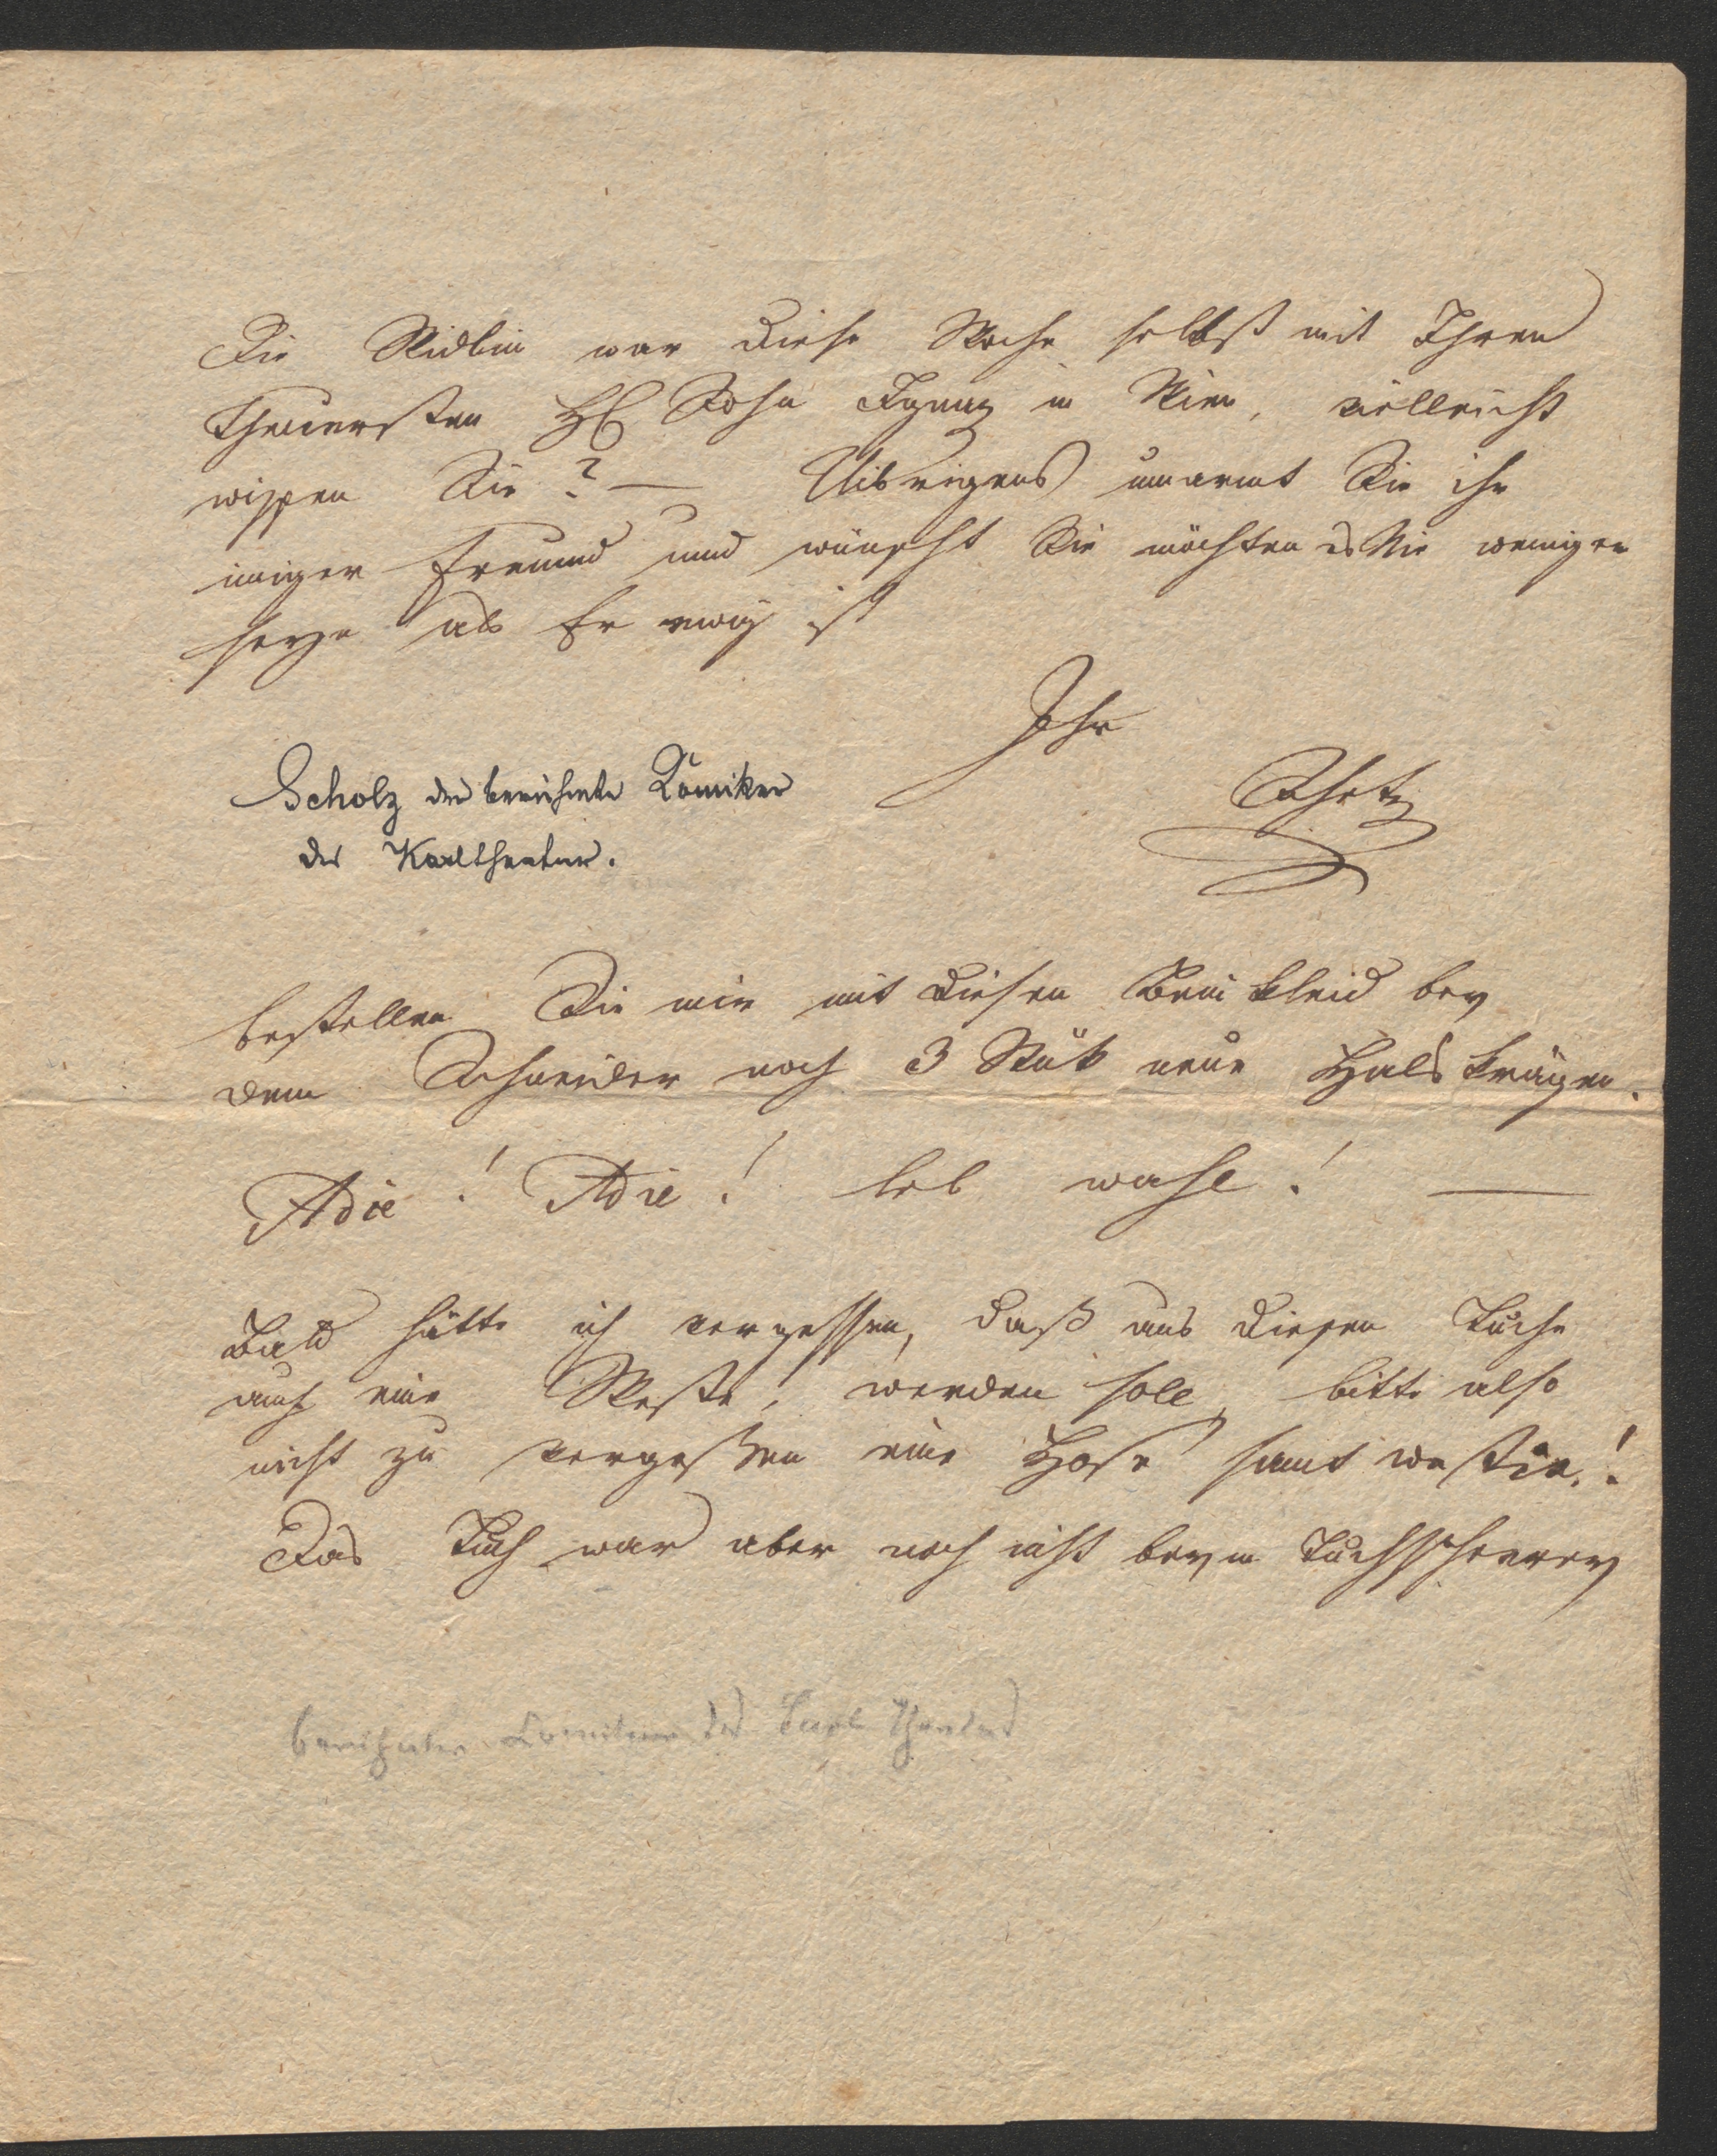 Die Nidlin war diese Woche selbst mit Ihren
Theuersten H Sohn Ignaz in Wien, vielleicht
wissen Sie? — Uibrigens umarmt Sie ihr
inniger Freund und wünscht Sie möchten es Nie weniger
seyn als Er ewig ist
Ihr
Scholz der berühmte Komiker
des Karltheaters.
bestellen Sie mir mit diesen Beinkleid bey
dem Schneider noch 3 Stük neue Halskrägen.
Adie! Adie! leb wohl! —
Bald hätte ich vergessen, daß aus diesen Tuche
auch eine Weste! werden soll, bitte also
nicht zu vergessen eine Hose samt westie.!
Das Tuch war aber noch nicht beym Tuchscherer
berühmter Komiker des Carl Theaters